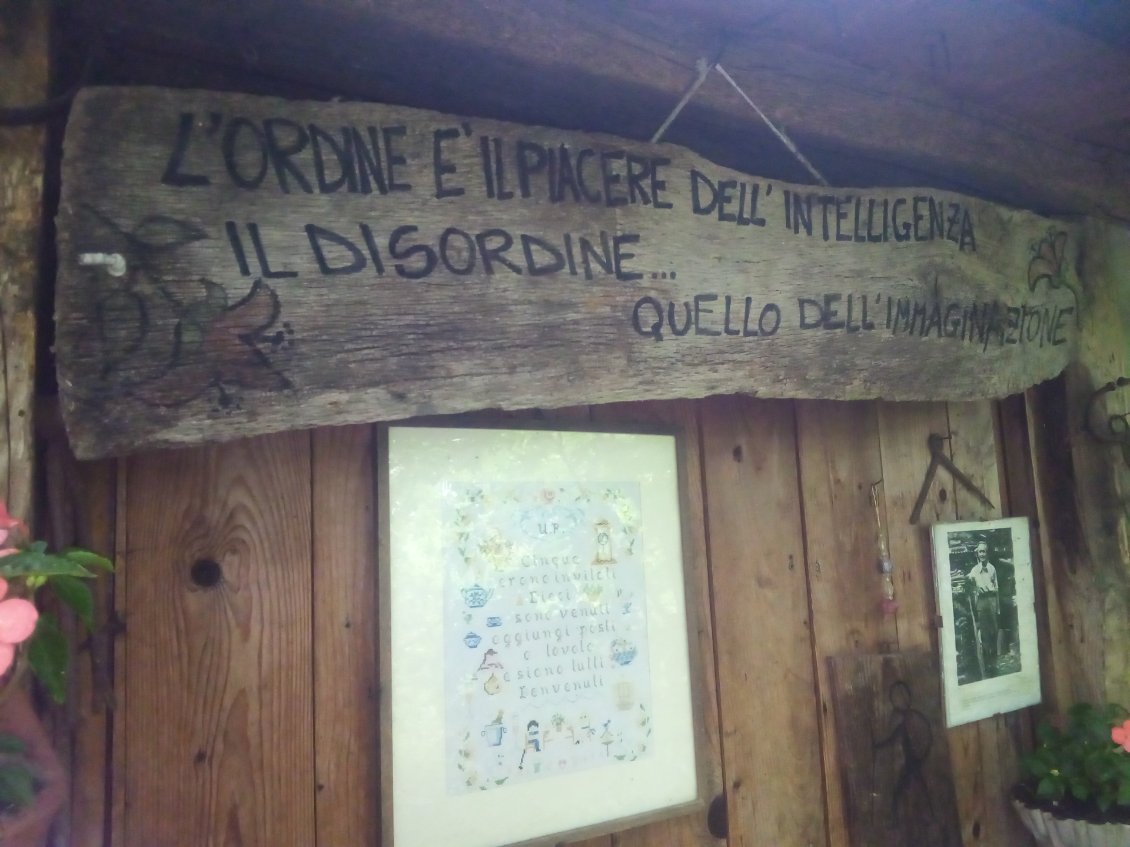 L'ORDINE E' IL PIACERE DELL' INTELLIGENZA
IL DISORDINE...
QUELLO DELL'IMMAGINAZIONE
U.R.
Cinque
erano invitati
Dieci
sono venuti
aggiungi posti
a tavola
e siano tutti
Benvenuti